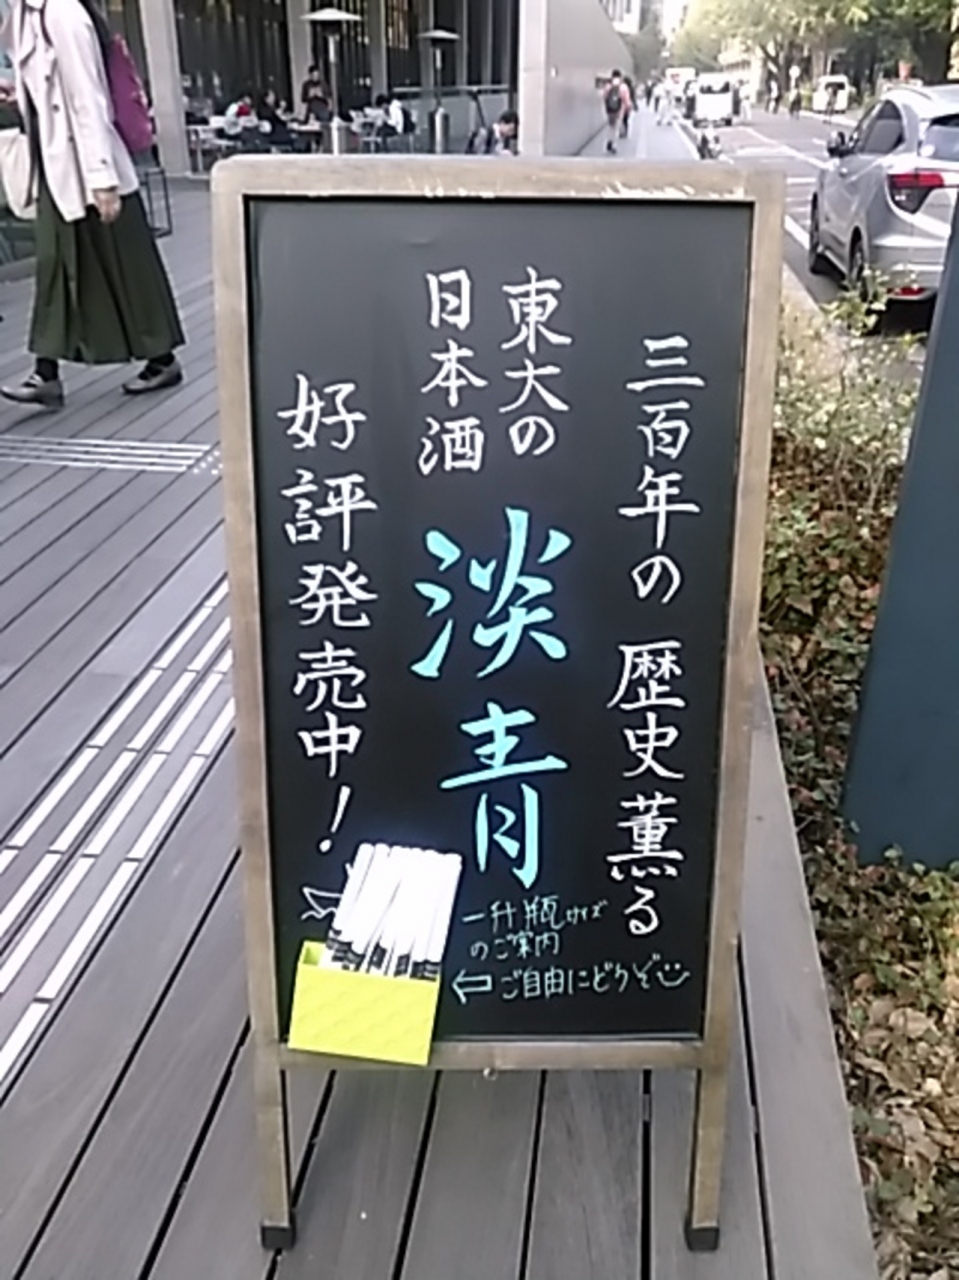 三百年の歴史薫る
東大の
日本酒
淡青
好評発売中！
一升瓶サイズ
のご案内
⇦ご自由にどうぞ